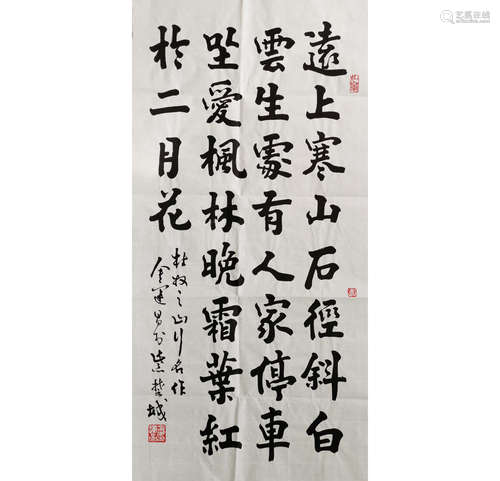 遠上寒山石徑斜白
雲生處有人家停車
坐愛楓林晚霜葉紅
於二月花
杜牧之山行名作
金運昌於紫禁城
艺狐在线